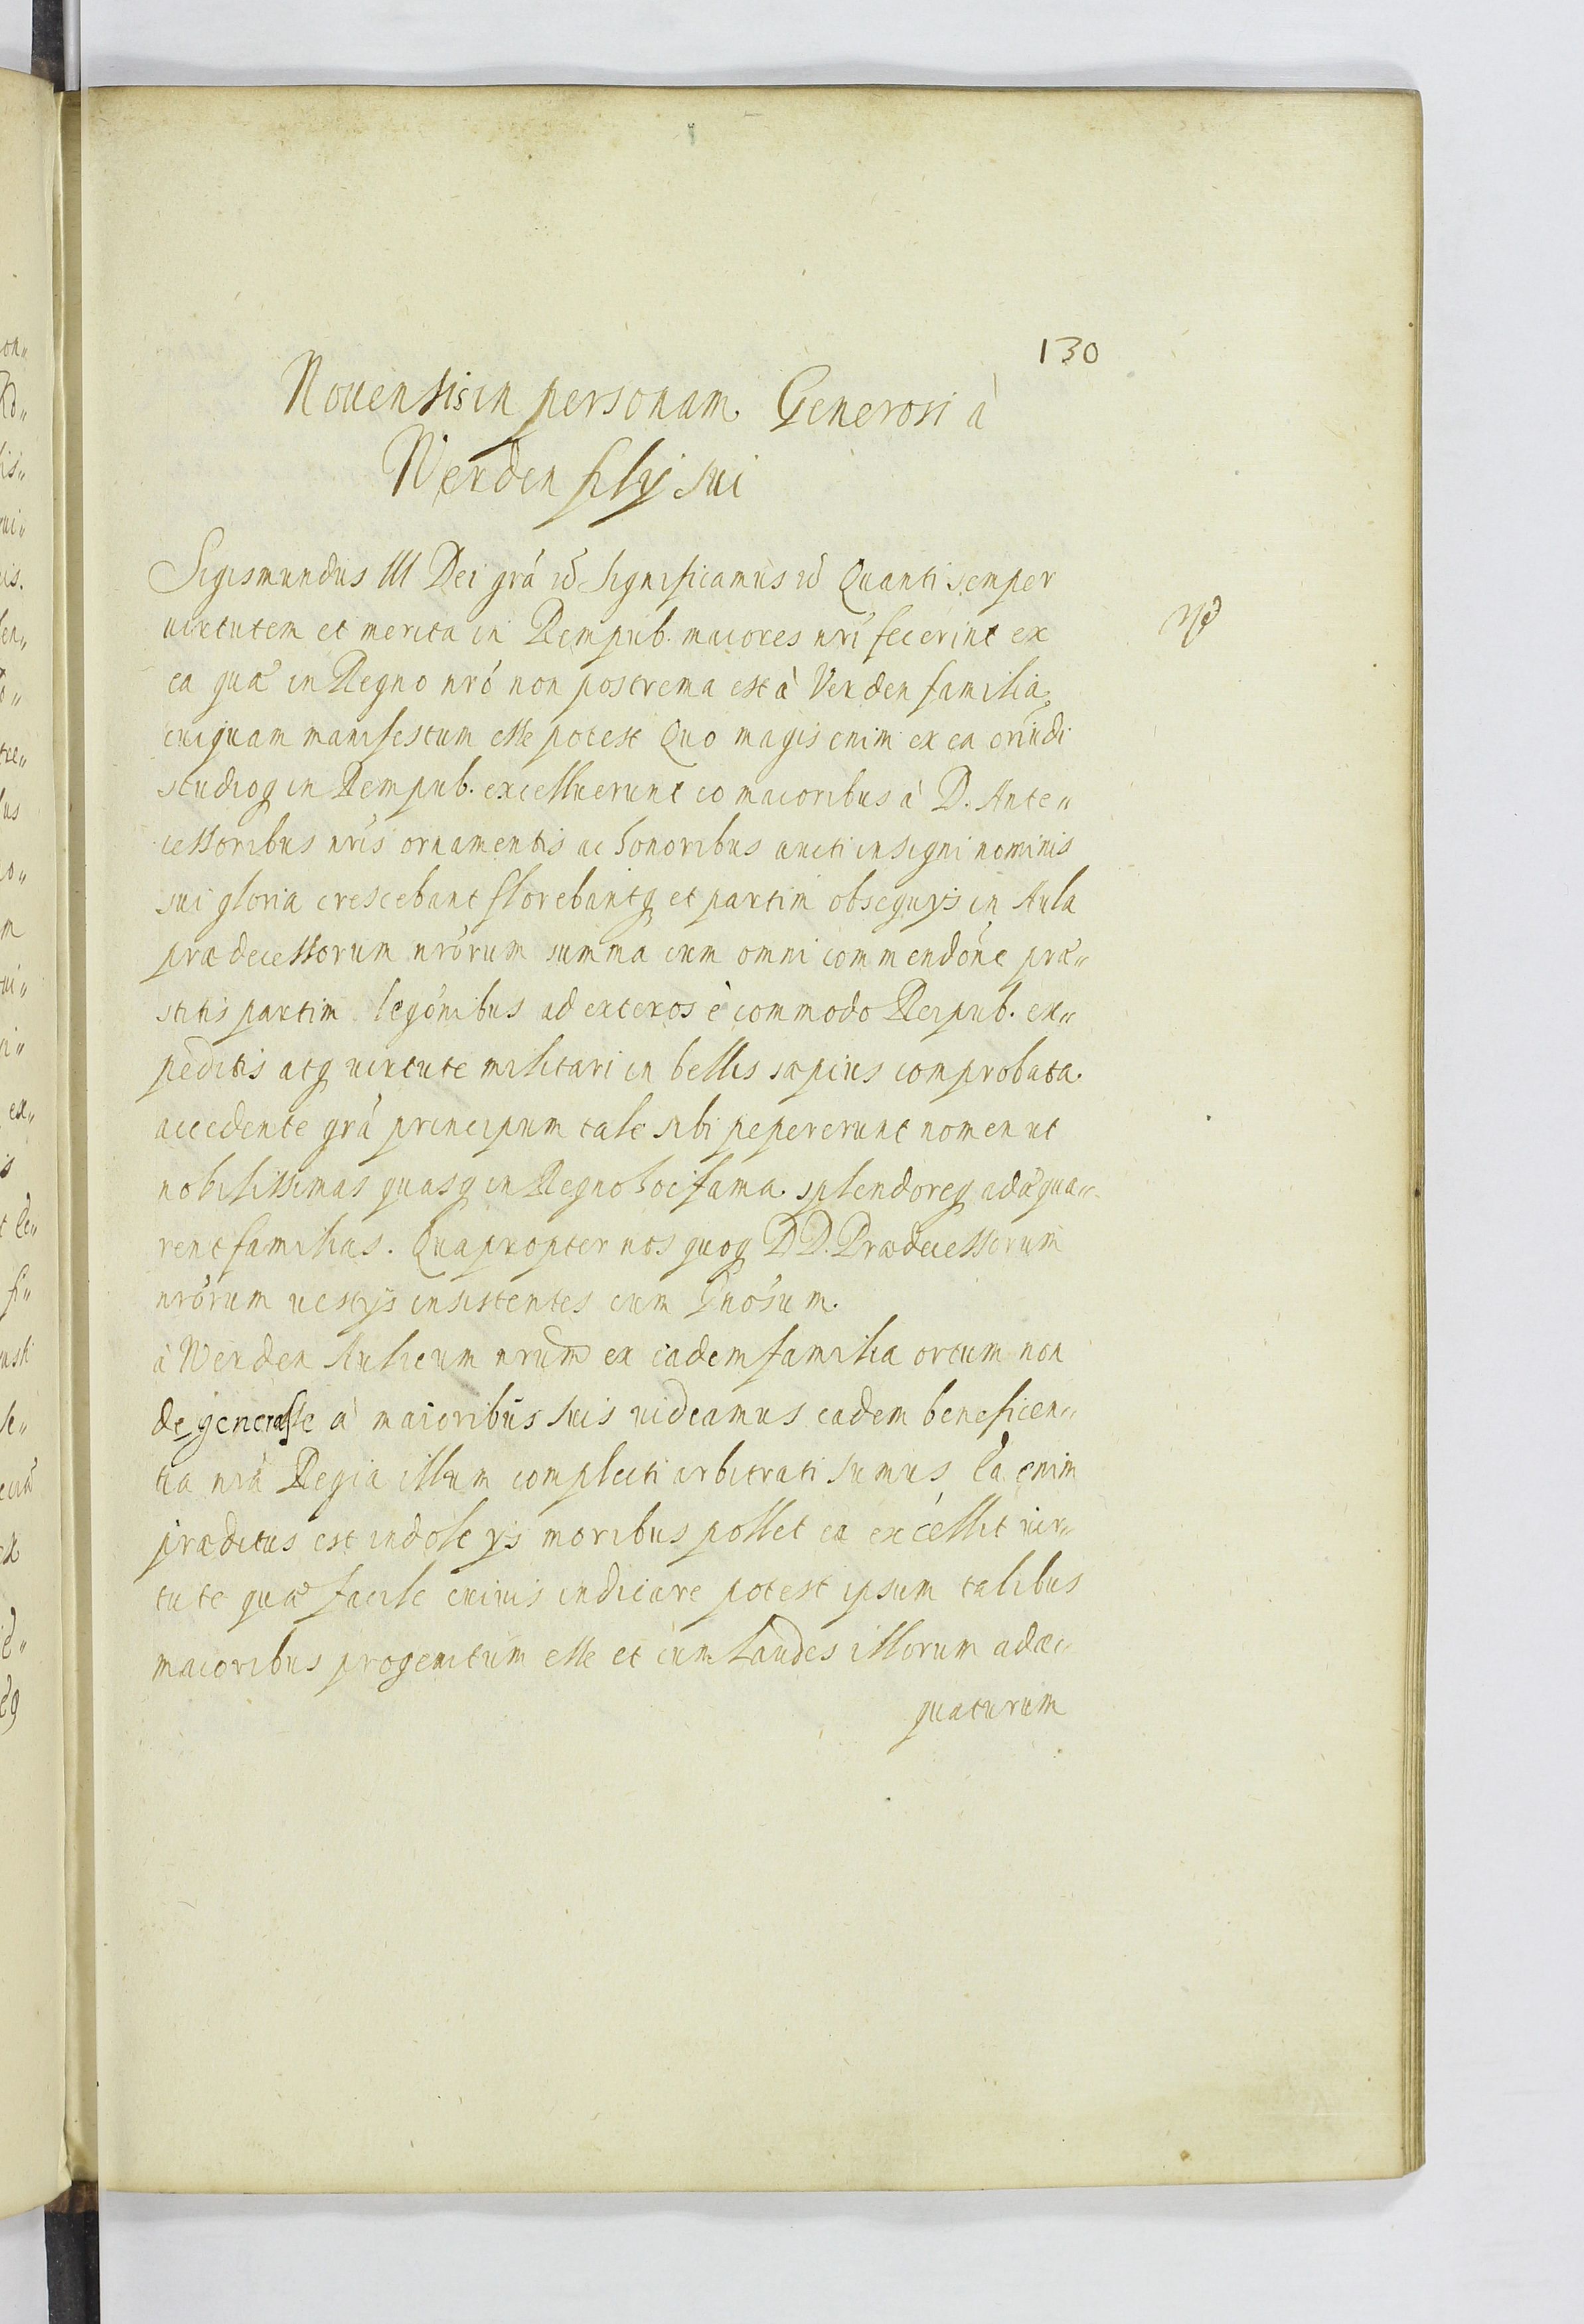 130
Nouensis in personam Generosi à
Werden filij sui
Sigismundus III Dei grã significamus Quanti semper
uirtutem et merita in Rempub. maiores nri fecerint ex
ea quæ in Regno nró non postrema est à Verden familia,
cuiquam manifestum esse potest Quo magis enim ex ea oriundi
studioq in Rempub. excelluerunt eo maioribus à D. Ante„
cessoribus nris ornamentis ac honoribus aucti insigni nominis
sui gloria crescebant florebantq et partim obsequys in Aula
prædecessorum nrórum summa cum omni commendóne præ„
stitis partim legónibus ad exteros è commodo Reipub. ex„
peditis atq uirtute militari in bellis sæpius comprobata
accedente grá principum tale sibi pepererunt nomen ut
nobilissimas quasq in Regno hoc fama splendoreq adæqua„
rent familias. Quapropter nos quoq DD. Prædecessorum
nrórum uestijs insistentes cum Gnósum.
à Werden Aulicum nrum ex eadem familia ortum non
degenerasse à maioribus suis uideamus eadem beneficen„
tia nrá Regia illum complecti arbitrati sumus Ea enim
præditus est indole ys moribus pollet ea excellit uir„
tute quæ facile cuiuis indicare potest ipsum talibus
maioribus progenitum esse et cum Laudes illorum adæ„
quaturum